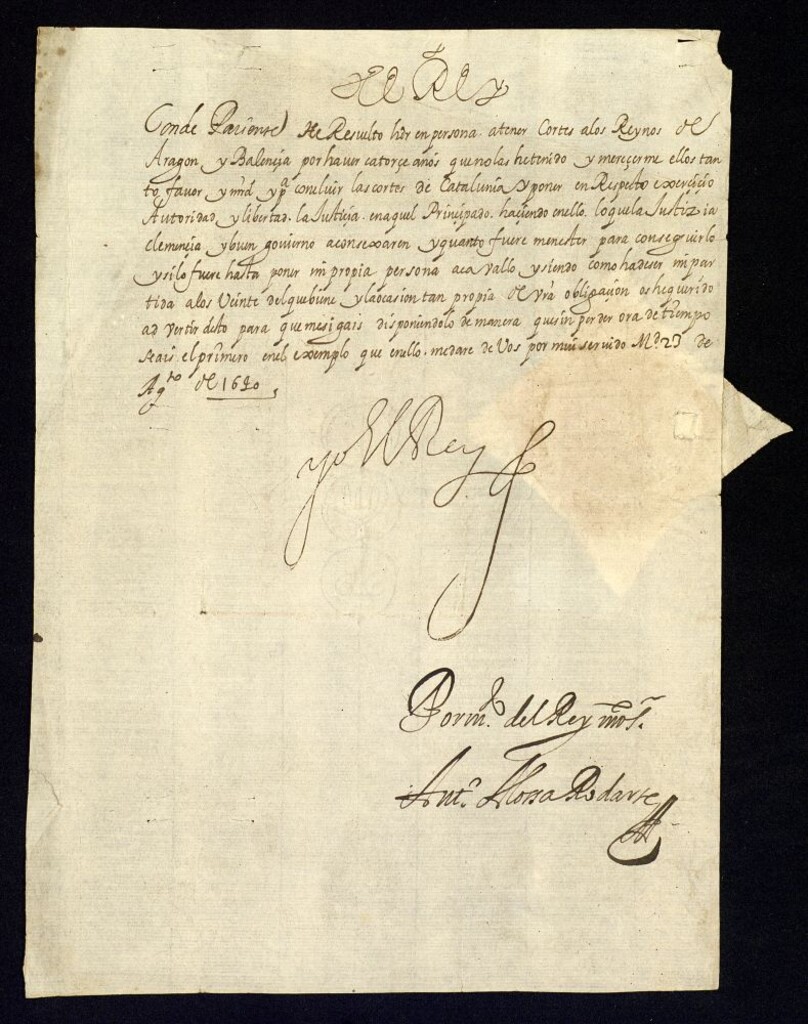 El Rey
Conde Pariente He Resuelto hir en persona a tener Cortes alos Reynos de
Aragon y Balençia por haver catorçe años que no las hetenido y mereçerme ellos tan
to favor y md y pa concluir las cortes de Catalunia y poner en Respecto exerçiçio
Autoridad y libertad la Justiçia en aquel Principado haçiendo en ello lo que la Justiz ia
clemençia y buen govierno aconsexaren y quanto fuere menester para conseguirlo
y si lo fuere hasta poner mi propia persona a ca vallo y siendo como hadeser mi par
tida alos Veinte del que biene y la ocasion tan propia de vra obligaçion os he querido
ad vertir desto para que me sigais disponiendolo de manera que sin perder ora de tiempo
seais el primero en el exemplo que en ello me dare de Vos por mui servido Md 23 de
Agto de 1640
yo El Rey
Por mdo del Rey nro sr
Anto Alossa Rodarte